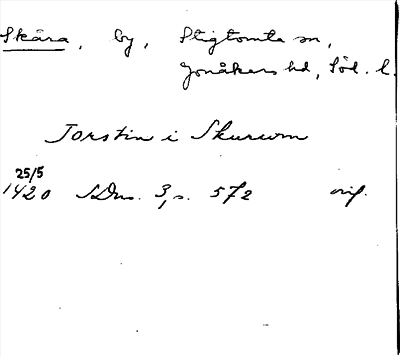 Skåra, by, Stigtomta sn,
Jonåkers hd, Söd. l.
Torstin i Skurum
25/5
1420 SDns. 3, s. 572 orig.